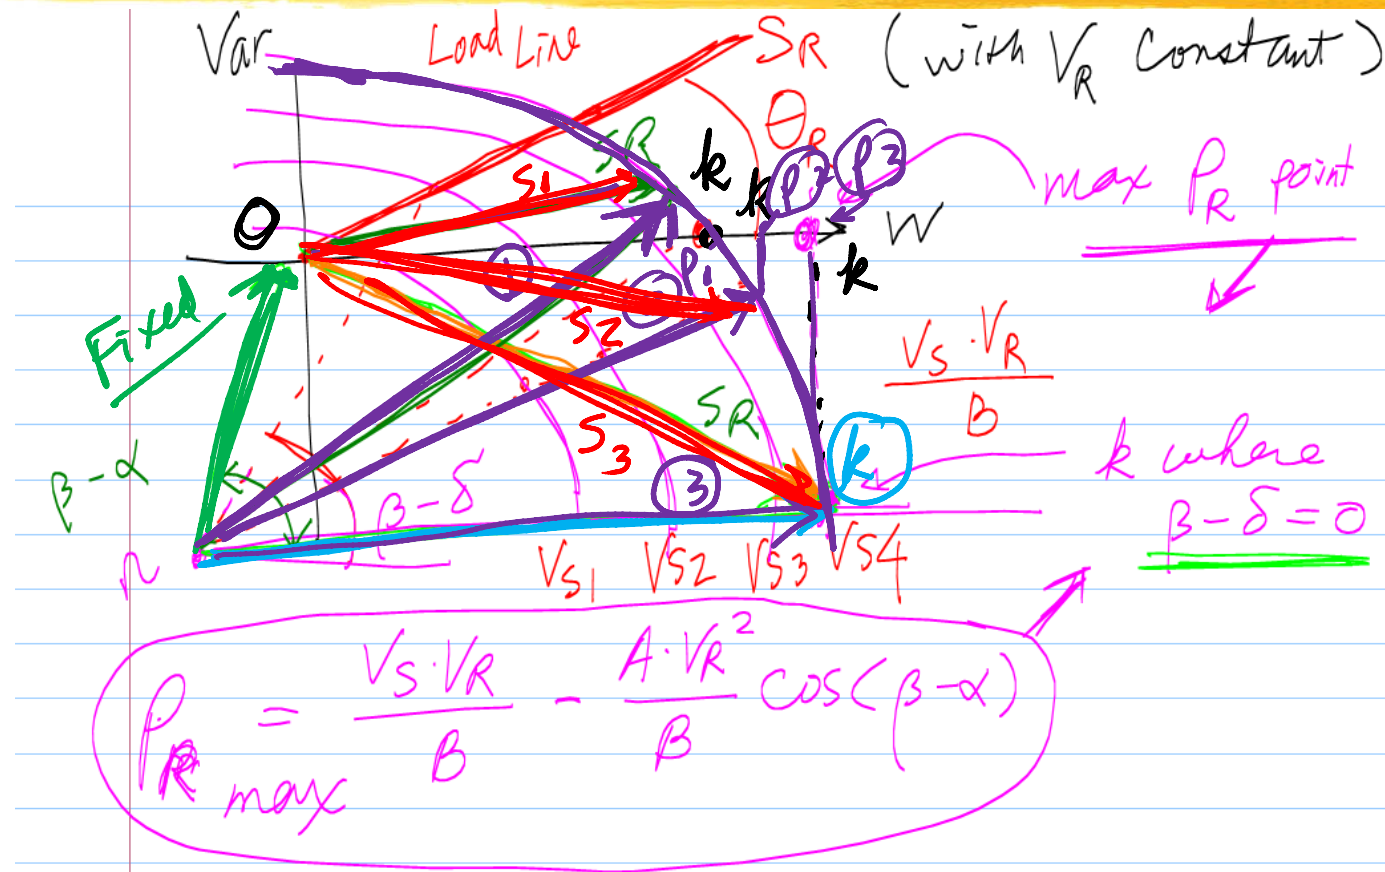 Var
Load Line
SR
(with VR constant)
θR
SR
S1
k
k
P2
P3
max PR point
O
W
k
Fixed
1
2
P1
S2
VS·VR
B
S3
SR
k
k where
β-δ=0
β-α
β-δ
3
n
VS1
VS2
VS3
VS4
PR max = VS·VR / B - A·VR² / B cos(β-α)